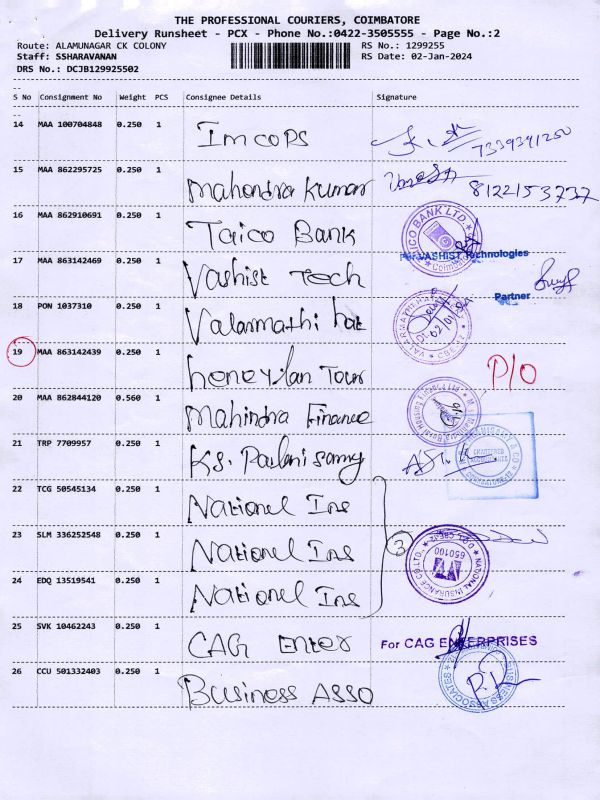 THE PROFESSIONAL COURIERS, COIMBATORE
Delivery Runsheet - PCX - Phone No.:0422-3505555 - Page No.:2
Route: ALAMUNAGAR CK COLONY RS No.: 1299255
Staff: SSHARAVANAN RS Date: 02-Jan-2024
DRS No.: DCJB129925502
S No Consignment No Weight PCS Consignee Details Signature
14 MAA 100704848 0.250 1 Imcops 7339391250
15 MAA 862295725 0.250 1 Mahendra Kumar 8122153737
16 MAA 862910691 0.250 1 Taico Bank
TAICO BANK LTD.
17 MAA 863142469 0.250 1 Vashist Tech
For VASHIST Technologies
Partner
18 PON 1037310 0.250 1 Valarmathi hat
02/01/24
19 MAA 863142439 0.250 1 honeylan Tour P/O
20 MAA 862844120 0.560 1 Mahindra Finance
21 TRP 7709957 0.250 1 Ks. Palanisamy
22 TCG 50545134 0.250 1 National Ins
23 SLM 336252548 0.250 1 National Ins 3
NATIONAL INSURANCE CO. LTD.
650100
24 EDQ 13519541 0.250 1 National Ins
25 SVK 10462243 0.250 1 CAG Enter
For CAG ENTERPRISES
26 CCU 501332403 0.250 1 Business Asso
BUSINESS ASSOCIATES